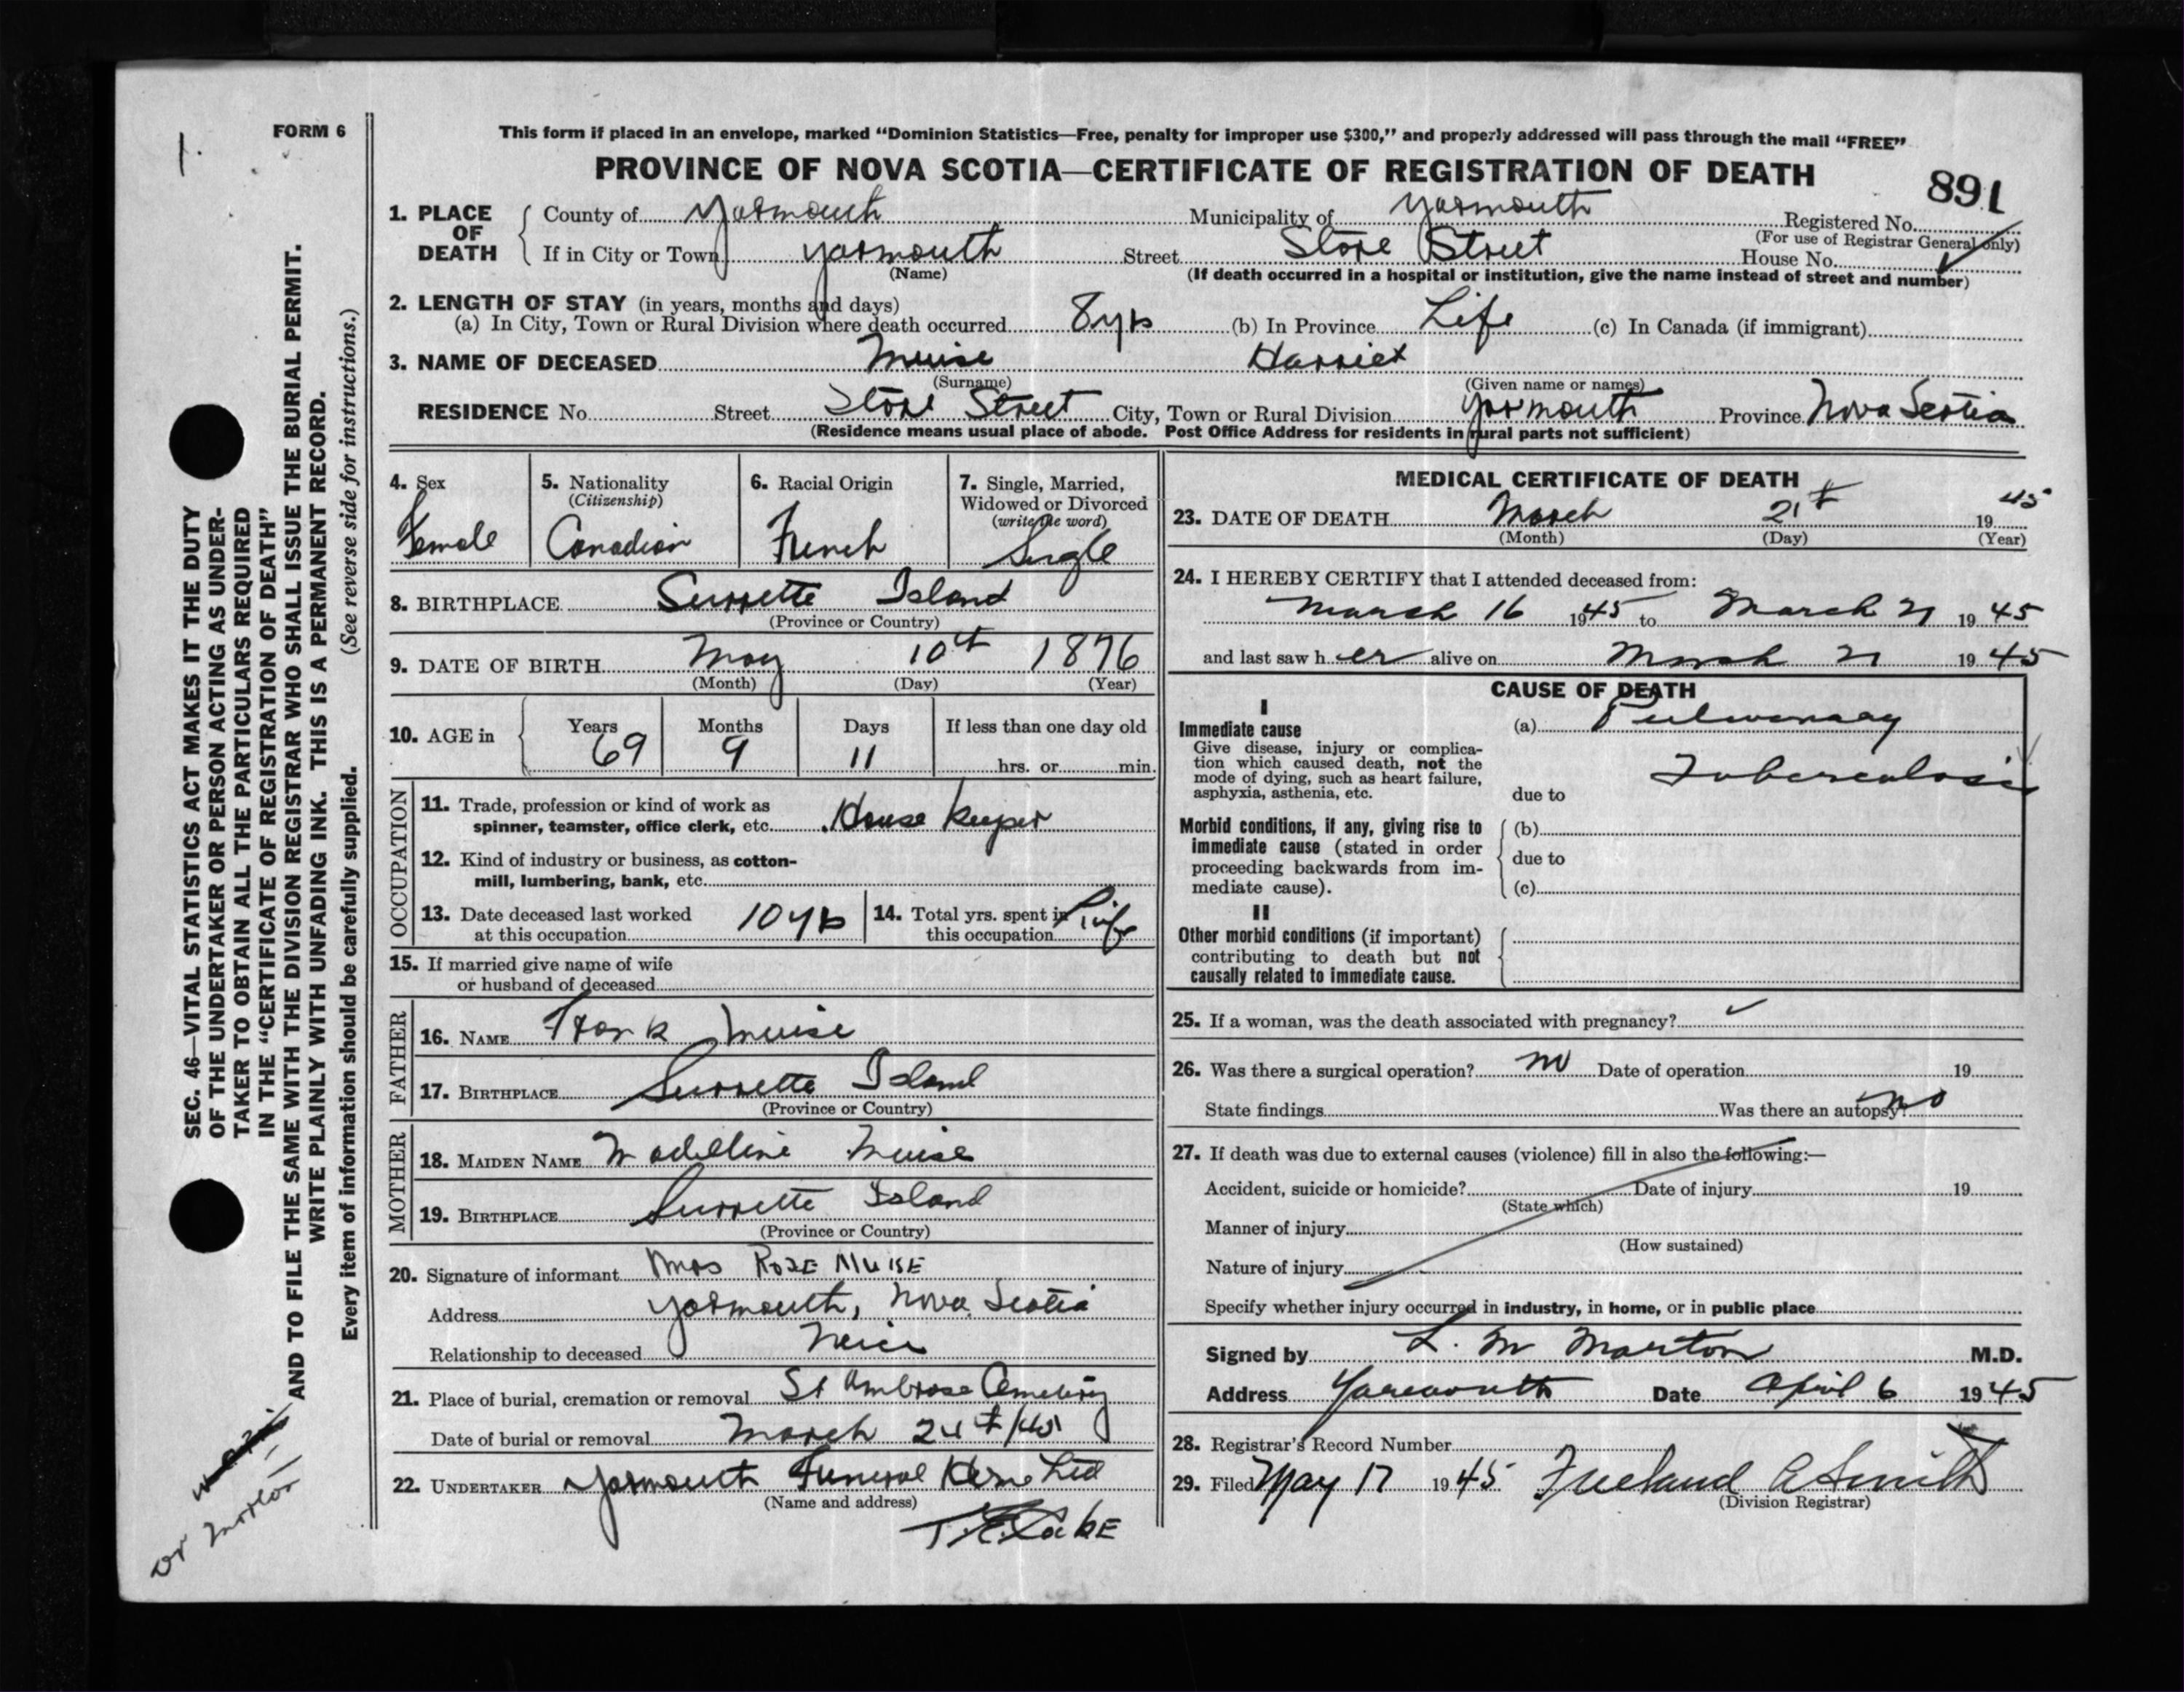 1.
FORM 6
This form if placed in an envelope, marked “Dominion Statistics—Free, penalty for improper use $300,” and properly addressed will pass through the mail “FREE”
PROVINCE OF NOVA SCOTIA—CERTIFICATE OF REGISTRATION OF DEATH
891
1. PLACE OF DEATH County of Yarmouth Municipality of Yarmouth Registered No.
(For use of Registrar General only)
If in City or Town Yarmouth Street Store Street House No.
(Name) (If death occurred in a hospital or institution, give the name instead of street and number)
2. LENGTH OF STAY (in years, months and days)
(a) In City, Town or Rural Division where death occurred 8 yrs (b) In Province Life (c) In Canada (if immigrant)
3. NAME OF DECEASED Muise Harriet
(Surname) (Given name or names)
RESIDENCE No. Street Store Street City, Town or Rural Division Yarmouth Province Nova Scotia
(Residence means usual place of abode. Post Office Address for residents in rural parts not sufficient)
4. Sex Female
5. Nationality (Citizenship) Canadian
6. Racial Origin French
7. Single, Married, Widowed or Divorced (write the word) Single
8. BIRTHPLACE Surrette Island
(Province or Country)
9. DATE OF BIRTH May 10th 1876
(Month) (Day) (Year)
10. AGE in Years 69 Months 9 Days 11 If less than one day old hrs. or min.
OCCUPATION
11. Trade, profession or kind of work as
spinner, teamster, office clerk, etc. House keeper
12. Kind of industry or business, as cotton-
mill, lumbering, bank, etc.
13. Date deceased last worked at this occupation 10 yrs 14. Total yrs. spent in this occupation Life
15. If married give name of wife
or husband of deceased
FATHER
16. NAME Frank Muise
17. BIRTHPLACE Surrette Island
(Province or Country)
MOTHER
18. MAIDEN NAME Madeline Muise
19. BIRTHPLACE Surrette Island
(Province or Country)
20. Signature of informant Mrs ROSE MUISE
Address Yarmouth, Nova Scotia
Relationship to deceased Neice
21. Place of burial, cremation or removal St Ambrose Cemetery
Date of burial or removal March 24th/45
22. UNDERTAKER Yarmouth Funeral Home Ltd
(Name and address)
MEDICAL CERTIFICATE OF DEATH
23. DATE OF DEATH March 21st 1945
(Month) (Day) (Year)
24. I HEREBY CERTIFY that I attended deceased from:
March 16 1945 to March 21 1945
and last saw her alive on March 21 1945
CAUSE OF DEATH
I
Immediate cause (a) Pulmonary
Give disease, injury or complica-
tion which caused death, not the
mode of dying, such as heart failure,
asphyxia, asthenia, etc.
Tuberculosis
due to
Morbid conditions, if any, giving rise to (b)
immediate cause (stated in order
proceeding backwards from im-
mediate cause).
due to
(c)
II
Other morbid conditions (if important)
contributing to death but not
causally related to immediate cause.
25. If a woman, was the death associated with pregnancy?
26. Was there a surgical operation? no Date of operation 19
State findings Was there an autopsy? no
27. If death was due to external causes (violence) fill in also the following:—
Accident, suicide or homicide? Date of injury 19
(State which)
Manner of injury
(How sustained)
Nature of injury
Specify whether injury occurred in industry, in home, or in public place
Signed by L. M Morton M.D.
Address Yarmouth Date April 6 1945
28. Registrar's Record Number
29. Filed May 17 1945 Freeland A Smith
(Division Registrar)
SEC. 46—VITAL STATISTICS ACT MAKES IT THE DUTY
OF THE UNDERTAKER OR PERSON ACTING AS UNDER-
TAKER TO OBTAIN ALL THE PARTICULARS REQUIRED
IN THE “CERTIFICATE OF REGISTRATION OF DEATH”
AND TO FILE THE SAME WITH THE DIVISION REGISTRAR WHO SHALL ISSUE THE BURIAL PERMIT.
WRITE PLAINLY WITH UNFADING INK. THIS IS A PERMANENT RECORD.
Every item of information should be carefully supplied. (See reverse side for instructions.)
Dr Morton